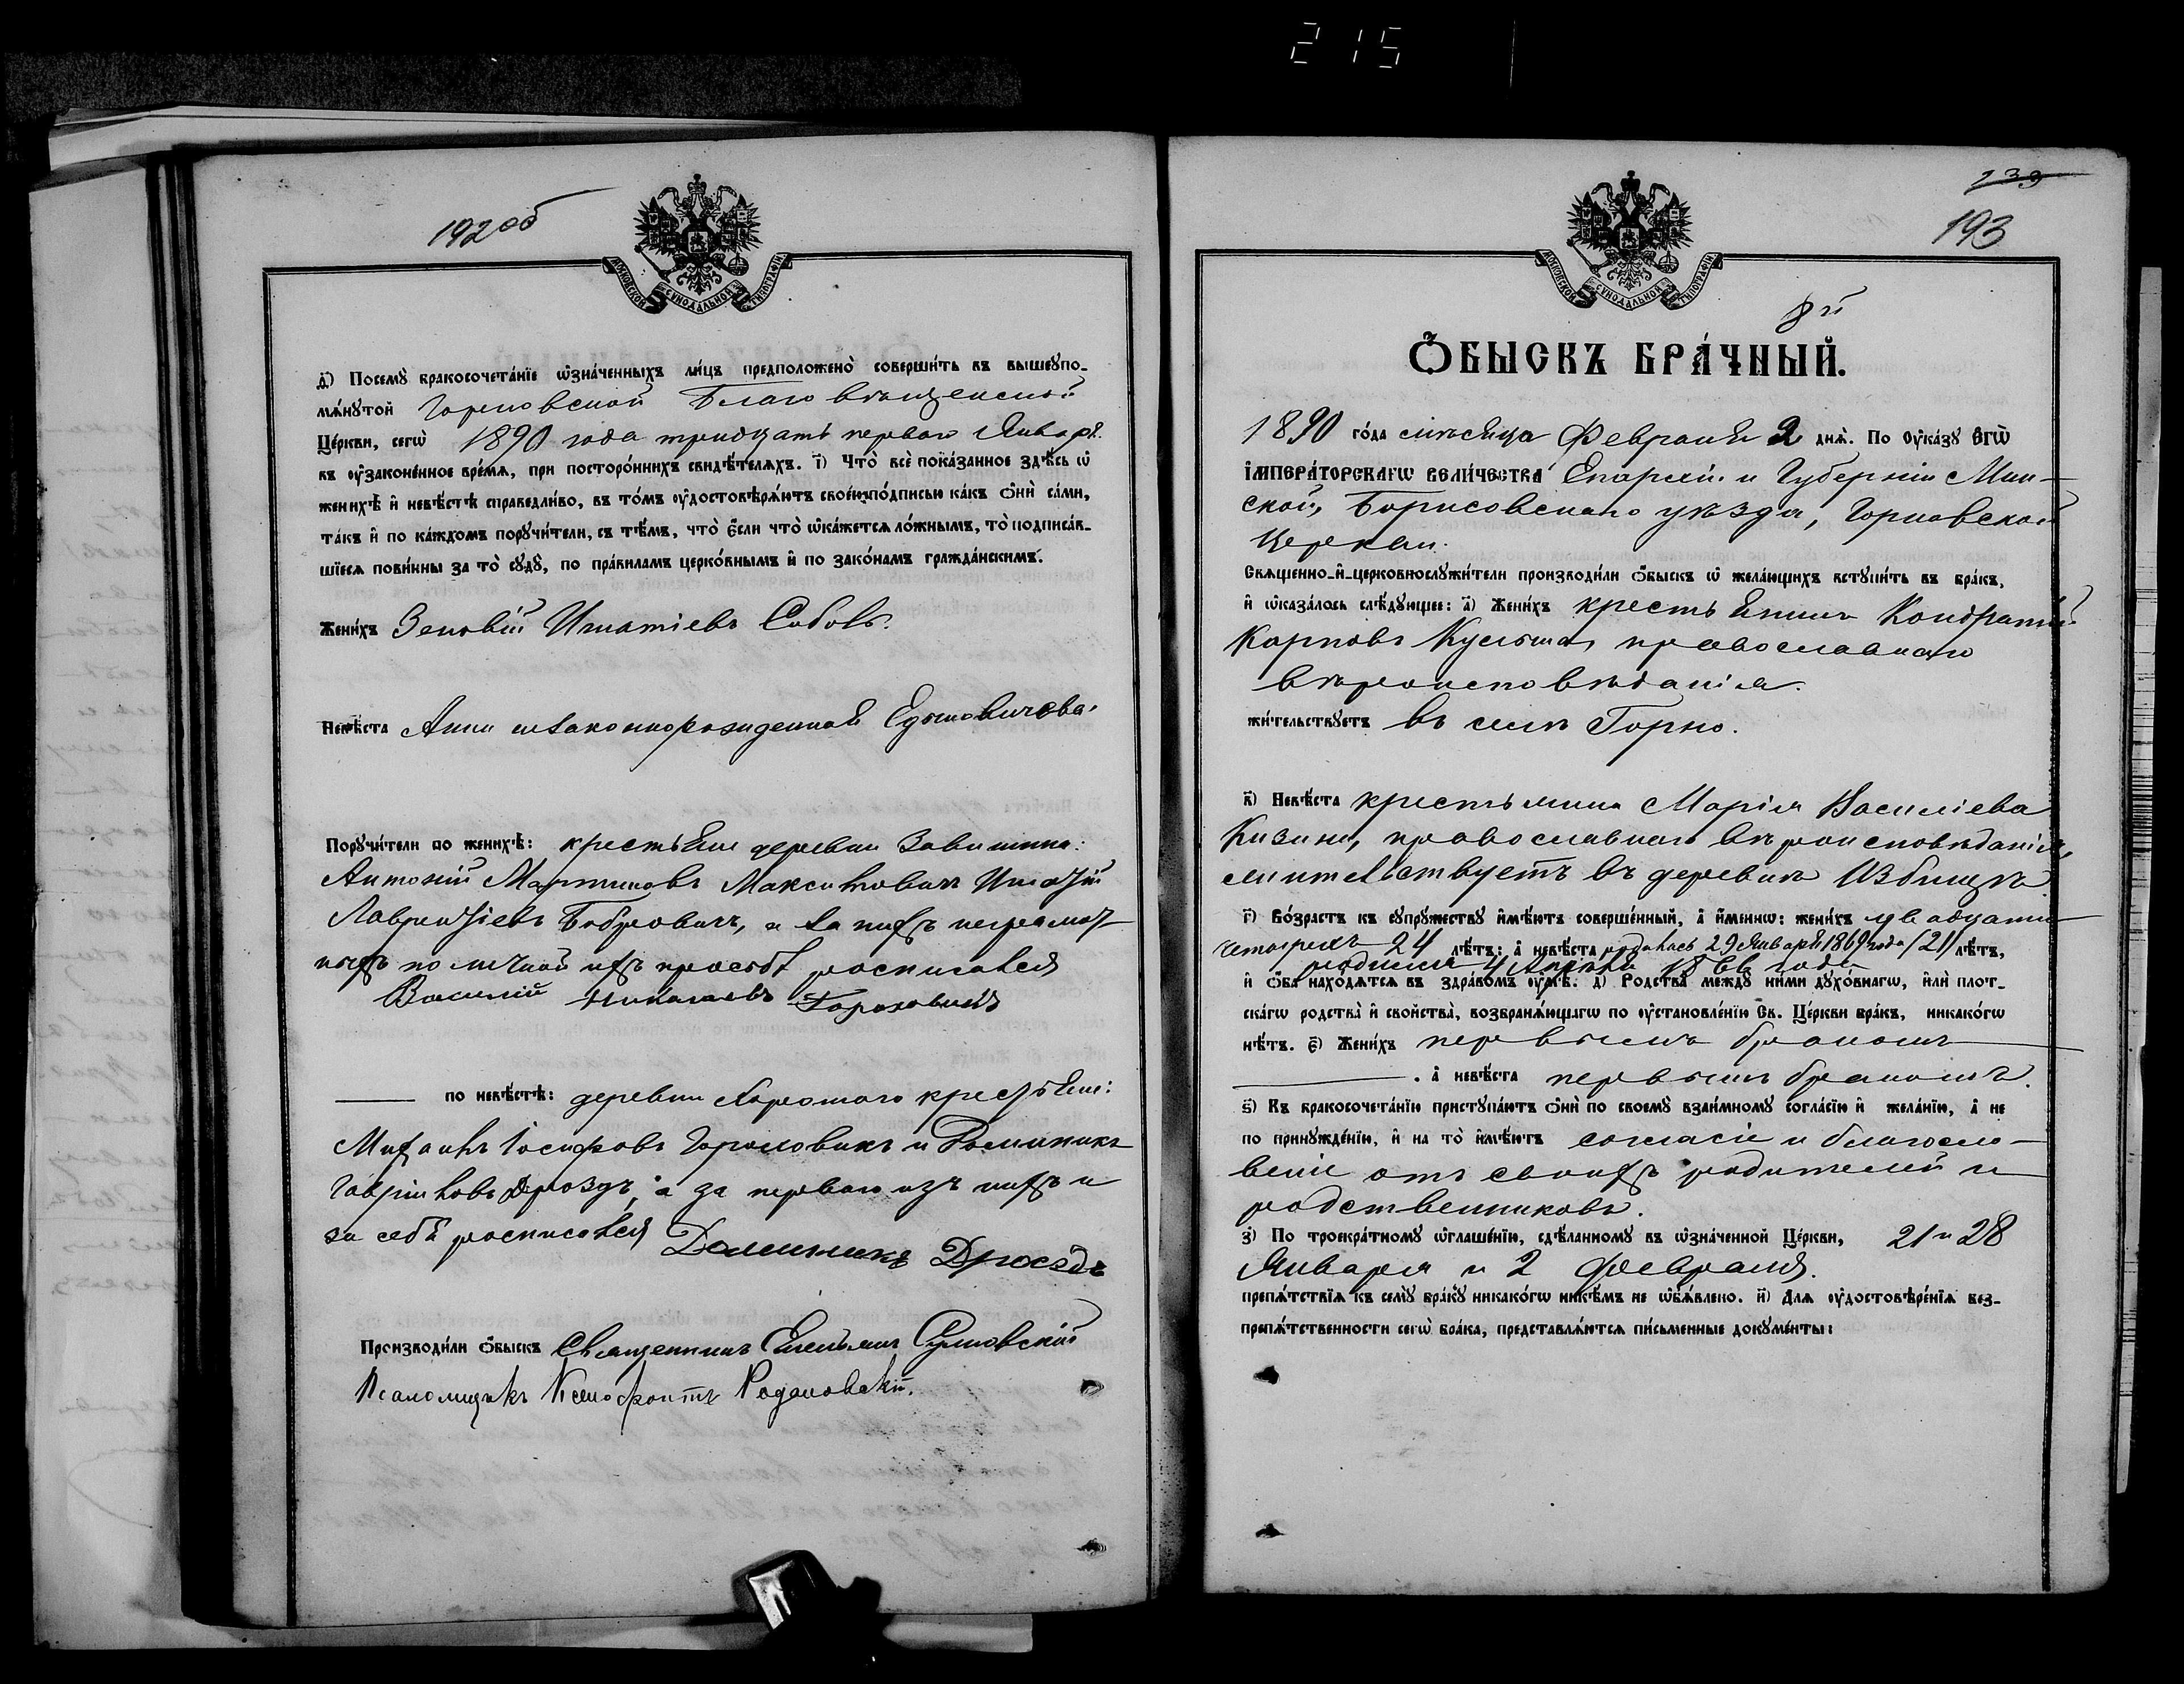 215
192об
МОСКОВСКОЙ СУНОДАЛЬНОЙ ТИПОГРАФІИ
д҃) Посемꙋ̀ бракосочета́нїе ѡ҆зна́ченныхъ ли́цъ предположено̀ соверши́ть въ вышеꙋпо-
мѧ́нꙋтой Горновской Благовѣщенской
Це́ркви, сегѡ̀ 1890 года тридцать перваго Январѣ
въ ᲂу҆зако́ненное вре́мѧ, при посторо́ннихъ свидѣ́телѧхъ. і҃) Что̀ всѐ пока́занное здѣ́сь ѡ҆
женихѣ̀ и҆ невѣ́стѣ справедли́во, въ то́мъ ᲂу҆достовѣрѧ́ютъ свое́ю по́дписью ка́къ ѻ҆нѝ са́ми,
та́къ и҆ по ка́ждомъ порꙋчи́тели, съ тѣ́мъ, что̀ є҆́сли что̀ ѡ҆ка́жетсѧ ло́жнымъ, то̀ подписа́в-
шїесѧ пови́нны за то̀ сꙋдꙋ̀, по пра́виламъ церко́внымъ и҆ по зако́намъ гражда́нскимъ.
Жени́хъ Зеновій Игнатіевъ Саболь.
Невѣ́ста Анна незаконнорожденная
Порꙋчи́тели по женихѣ̀: крестьяне деревни
Антоній Мартиновъ Максимовичъ Игнатій
Лаврентіевъ Бобровичъ, а за нихъ неграмот-
ныхъ по личной ихъ просьбѣ росписался
Василій Николаевъ Гороховикъ
по невѣ́стѣ: деревни крестьяне:
Михаилъ Іосифовъ Гороховикъ и Доминикъ
Гавріиловъ Дроздъ, а за перваго изъ нихъ и
за себя росписался Доминикъ Дроздъ
Производи́ли ѻ҆́быскъ Священникъ Емельянъ
Псаломщикъ Ксенофонтъ
139
193
МОСКОВСКОЙ СУНОДАЛЬНОЙ ТИПОГРАФІИ
8й
Ѻ҆́БЫСКЪ БРА́ЧНЫЙ.
1890 го́да мѣсяца Февраля 2 днѧ̀. По ᲂу҆ка́зꙋ Є҆ГѠ̀
І҆МПЕРА́ТОРСКАГѠ ВЕЛИ́ЧЕСТВА Епархіи и Губерніи Мин-
ской, Борисовскаго уѣзда, Горновской
Церкви.
Свѧще́нно-и҆-церковнослꙋжи́тели производи́ли ѻ҆́быскъ ѡ҆ жела́ющихъ встꙋпи́ть въ бра́къ,
и҆ ѡ҆каза́лось слѣ́дꙋющее: а҃) Жени́хъ крестьянинъ Кондратій
Карповъ православнаго
вѣроисповѣданія.
жи́тельствꙋетъ въ селѣ Горно.
в҃) Невѣ́ста крестьянина Марія Василіева
православнаго вѣроисповѣданія,
жительствуетъ въ деревнѣ Избищѣ
г҃) Во́зрастъ къ сꙋпрꙋ́жествꙋ и҆мѣ́ютъ соверше́нный, а҆ и҆́меннѡ: жени́хъ двадцати
четырехъ 24 лѣ́тъ; а҆ невѣ́ста родилась 29 Января 1869 года (21) лѣ́тъ,
родился 4 Апрѣля 1866 года
и҆ ѻ҆́ба нахо́дѧтсѧ въ здра́вомъ ᲂу҆мѣ̀. д҃) Родства̀ мє́ждꙋ ни́ми дꙋхо́внагѡ, и҆лѝ пло́т-
скагѡ родства̀ и҆ сво́йства, возбранѧ́ющагѡ по ᲂу҆становле́нїю Св. Це́ркви бра́къ, никако́гѡ
нѣ́тъ. є҃) Жени́хъ первымъ бракомъ
. а҆ невѣ́ста первымъ бракомъ.
ѕ҃) Къ бракосочета́нїю пристꙋпа́ютъ ѻ҆нѝ по своемꙋ̀ взаи́мномꙋ согла́сїю и҆ жела́нїю, а҆ не
по принꙋжде́нїю, и҆ на то̀ и҆мѣ́ютъ согласіе и благосло-
веніе отъ своихъ родителей и
родственниковъ.
з҃) По троекра́тномꙋ ѡ҆глаше́нїю, сдѣ́ланномꙋ въ ѡ҆зна́ченной Це́ркви, 21 и 28
Января и 2 Февраля.
препѧ́тствїѧ къ семꙋ̀ бра́кꙋ никако́гѡ никѣ́мъ не ѡ҆б̾ѧ́влено. и҃) Длѧ ᲂу҆достовѣре́нїѧ без-
препѧ́тственности сегѡ̀ бра́ка, представлѧ́ютсѧ пи́сьменные докꙋме́нты: